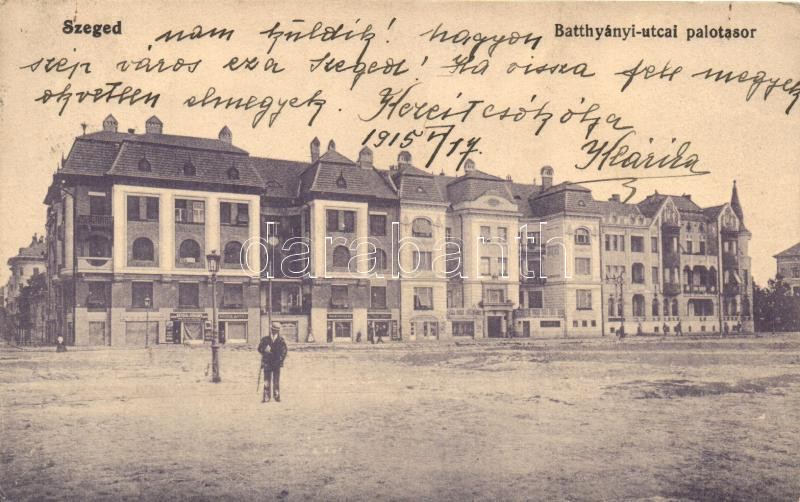 Szeged
Batthyányi-utcai palotasor
nam küldik! nagyon
szép város eza Szeged! Ha vissza fele megyek
okvetlen elmegyek. Kezeit csókolja
1915 V/17.
Klárika
databanth